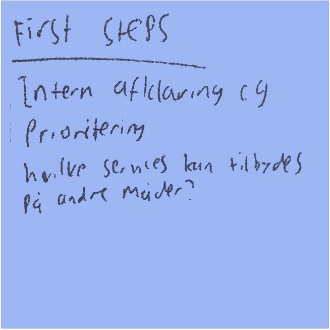 First STEPS
Intern afklaring og
Prioritering
hvilke services kan tilbydes
på andre måder?